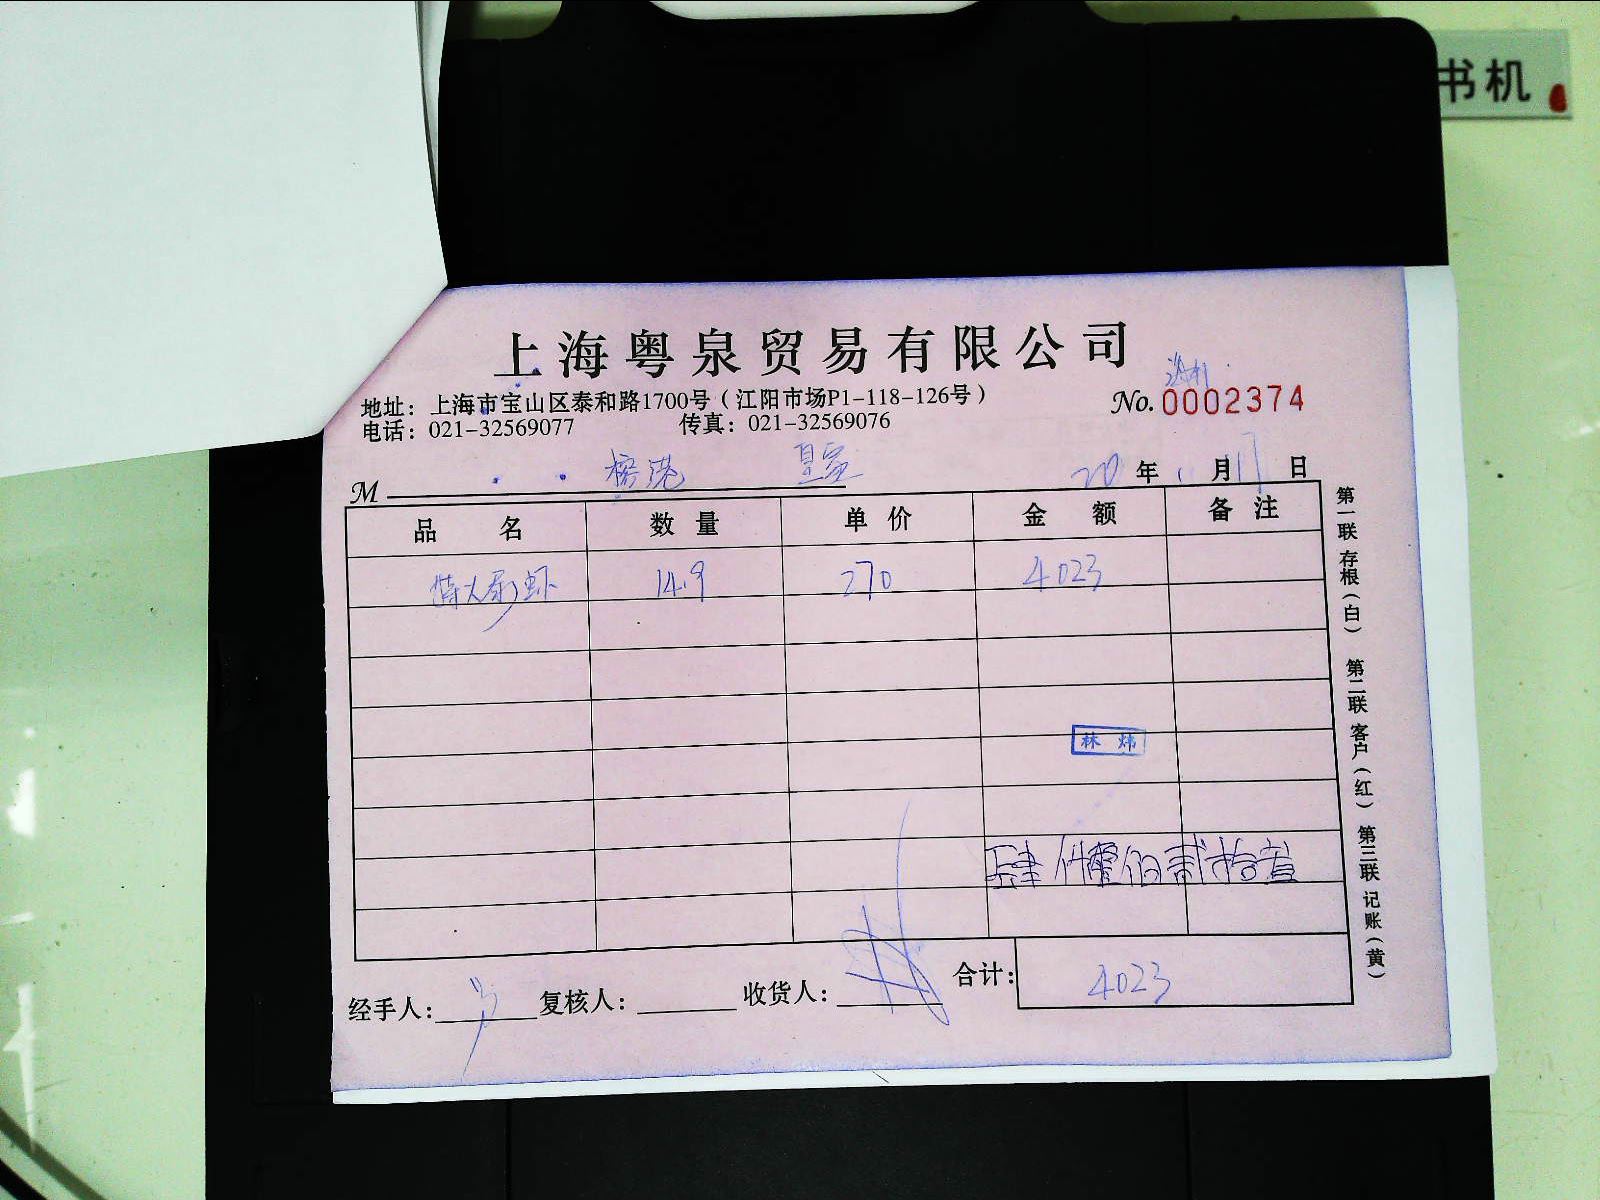 书机
上海粤泉贸易有限公司
地址：上海市宝山区泰和路1700号（江阳市场P1-118-126号）
No. 0002374
电话：021-32569077 传真：021-32569076
M 榕港 皇宴 20 年 11 月 17 日
品名 数量 单价 金额 备注
14.9 270 4023
林炜
肆仟零佰贰拾叁
经手人： 复核人： 收货人： 合计： 4023
第一联 存根（白） 第二联 客户（红） 第三联 记账（黄）